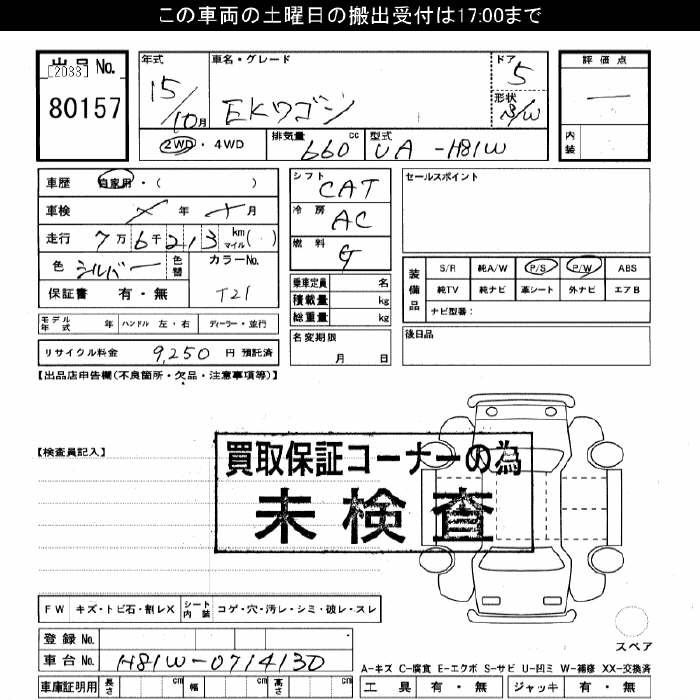 この車両の土曜日の搬出受付は17:00まで
出品No. [2033] 80157
年式 15/10月
車名・グレード EKワゴン
ドア 5
形状 S/W
評価点 ―
内装
2WD・4WD
排気量 660 cc
型式 UA-H81W
車歴 自家用・( )
車検 年 月
走行 7万6千213 km マイル( )
色 シルバー 色替 カラーNo. T21
保証書 有・無
シフト CAT
冷房 AC
燃料 G
乗車定員 名
積載量 kg
総重量 kg
名変期限 月 日
セールスポイント
装備品 S/R 純A/W P/S P/W ABS
純TV 純ナビ 革シート 外ナビ エアB
ナビ型番:
後日品
モデル年式 年 ハンドル 左・右 ディーラー・並行
リサイクル料金 9,250 円 預託済
【出品店申告欄(不良箇所・欠品・注意事項等)】
【検査員記入】
買取保証コーナーの為
未検査
FW キズ・トビ石・割レX シート内装 コゲ・穴・汚レ・シミ・破レ・スレ
登録No.
車台No. H81W-0714130
車庫証明用 長さ cm 幅 cm 高さ cm
スペア
A-キズ C-腐食 E-エクボ S-サビ U-凹ミ W-補修 XX-交換済
工具 有・無 ジャッキ 有・無